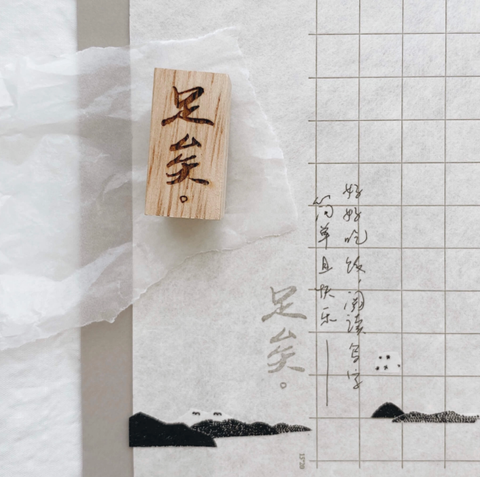 足矣。
好好吃饭,阅读写字
简单且快乐——
足矣。